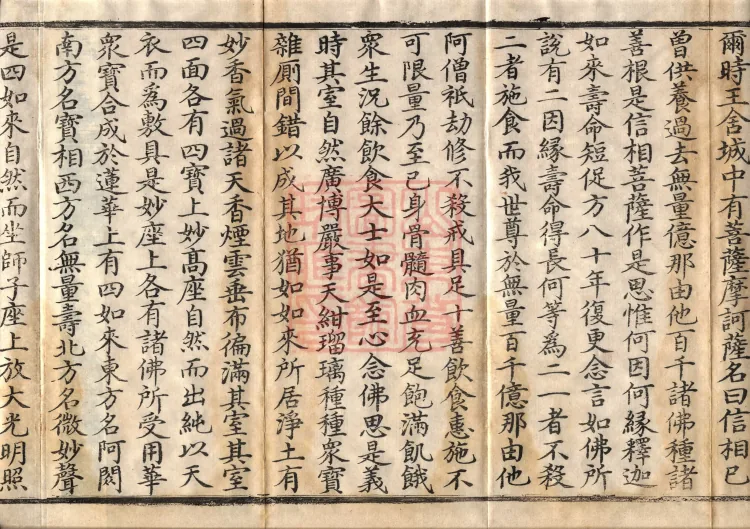 爾時王舍城中有菩薩摩訶薩名曰信相已
曾供養過去無量億那由他百千諸佛種諸
善根是信相菩薩作是思惟何因何緣釋迦
如來壽命短促方八十年復更念言如佛所
說有二因緣壽命得長何等為二一者不殺
二者施食而我世尊於無量百千億那由他
阿僧祇劫修不殺戒具足十善飲食惠施不
可限量乃至已身骨髓肉血充足飽滿飢餓
眾生況餘飲食大士如是至心念佛思是義
時其室自然廣博嚴事天紺瑠璃種種眾寶
雜廁間錯以成其地猶如如來所居淨土有
妙香氣過諸天香煙雲垂布徧滿其室其室
四面各有四寶上妙高座自然而出純以天
衣而為敷具是妙座上各有諸佛所受用華
眾寶合成於蓮華上有四如來東方名阿閦
南方名寶相西方名無量壽北方名微妙聲
是四如來自然而坐師子座上放大光明照